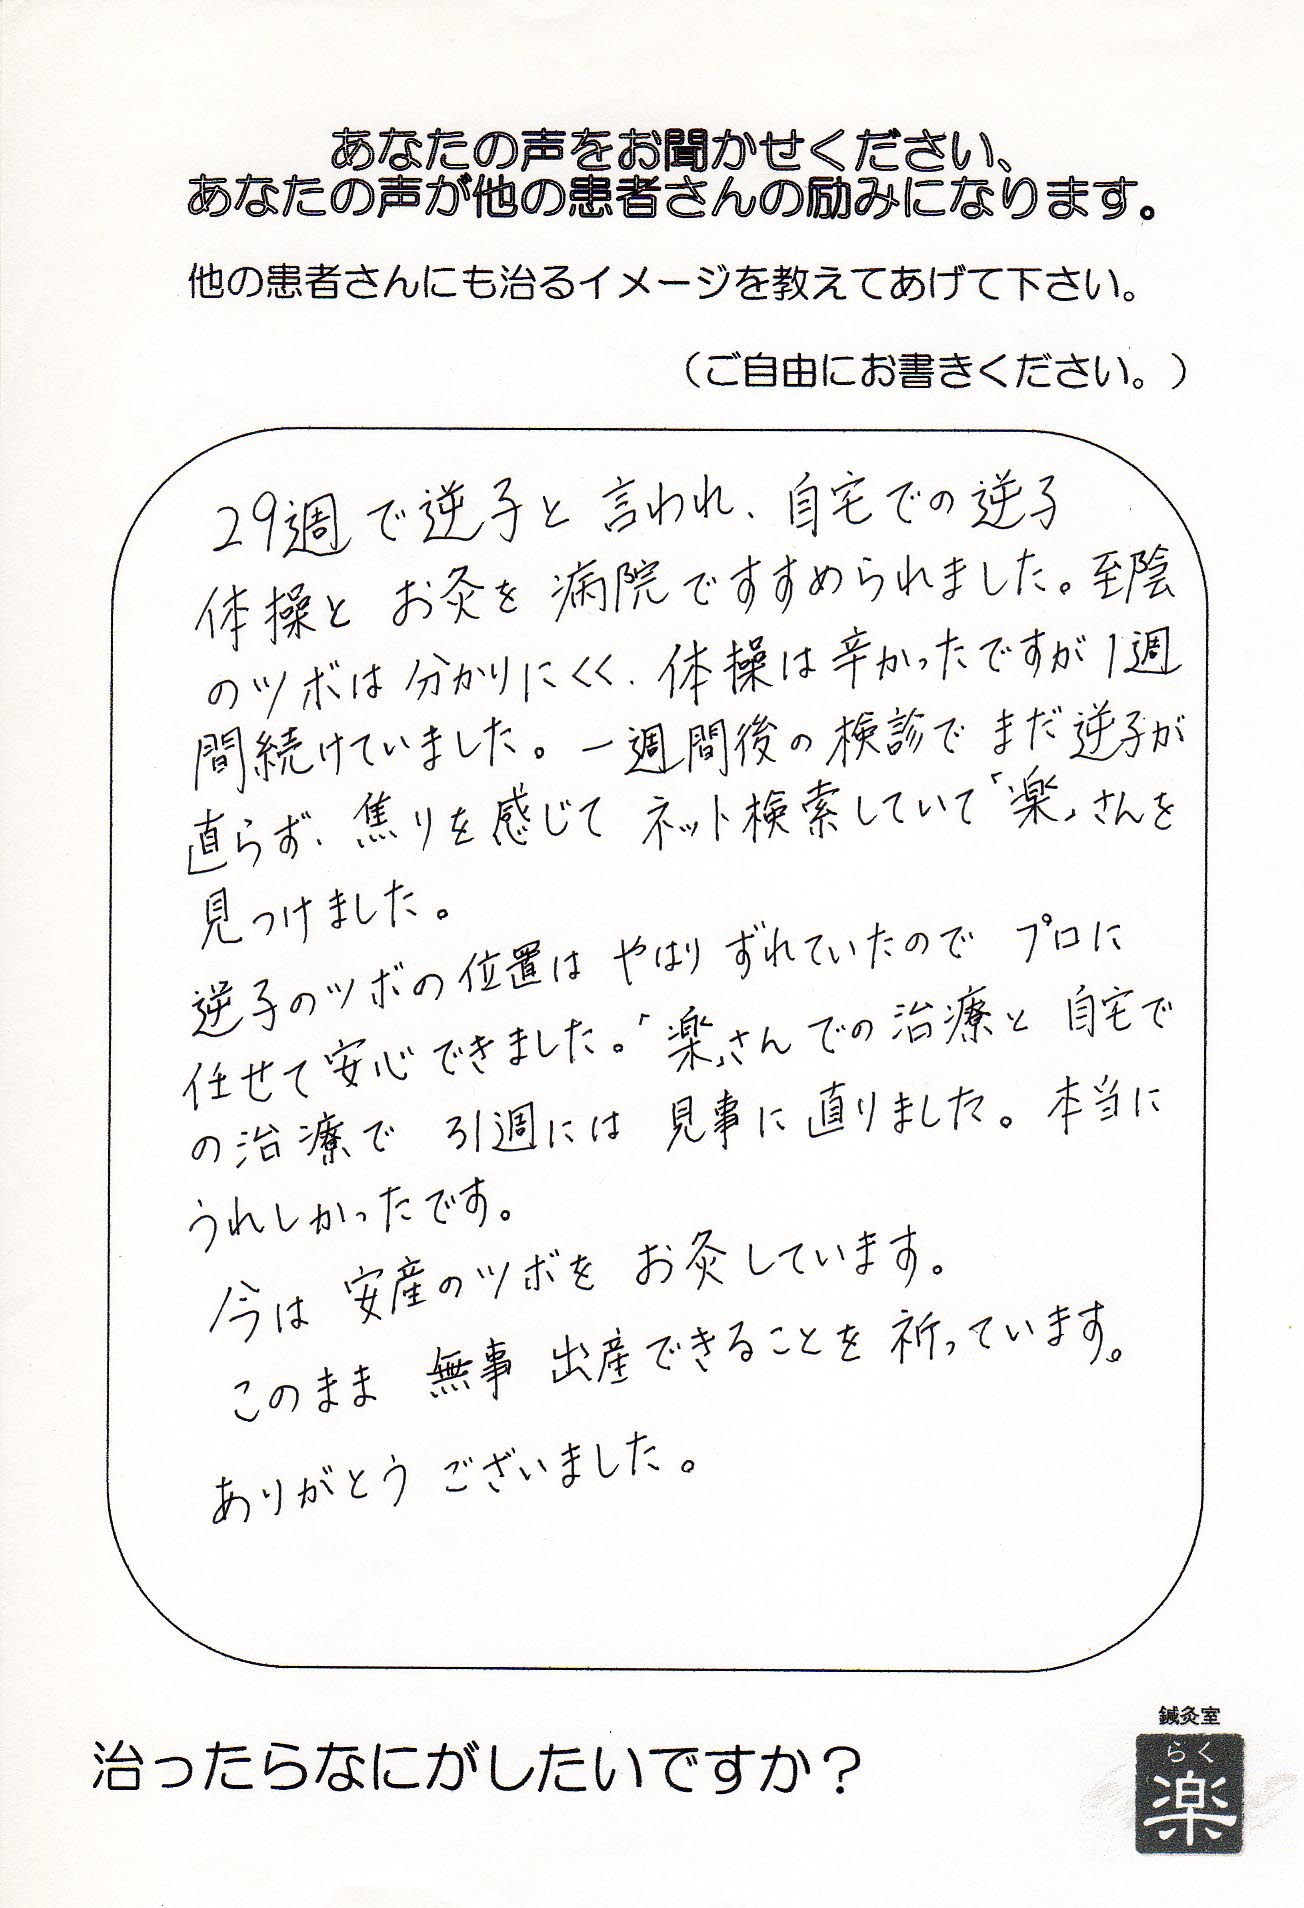 あなたの声をお聞かせください、
あなたの声が他の患者さんの励みになります。
他の患者さんにも治るイメージを教えてあげて下さい。
（ご自由にお書きください。）
29週で逆子と言われ、自宅での逆子
体操とお灸を病院ですすめられました。至陰
のツボは分かりにくく、体操は辛かったですが1週
間続けていました。一週間後の検診でまだ逆子が
直らず、焦りを感じてネット検索していて「楽」さんを
見つけました。
逆子のツボの位置はやはりずれていたのでプロに
任せて安心できました。「楽」さんでの治療と自宅で
の治療で31週には見事に直りました。本当に
うれしかったです。
今は安産のツボをお灸しています。
このまま無事出産できることを祈っています。
ありがとうございました。
治ったらなにがしたいですか？
鍼灸室
らく
楽